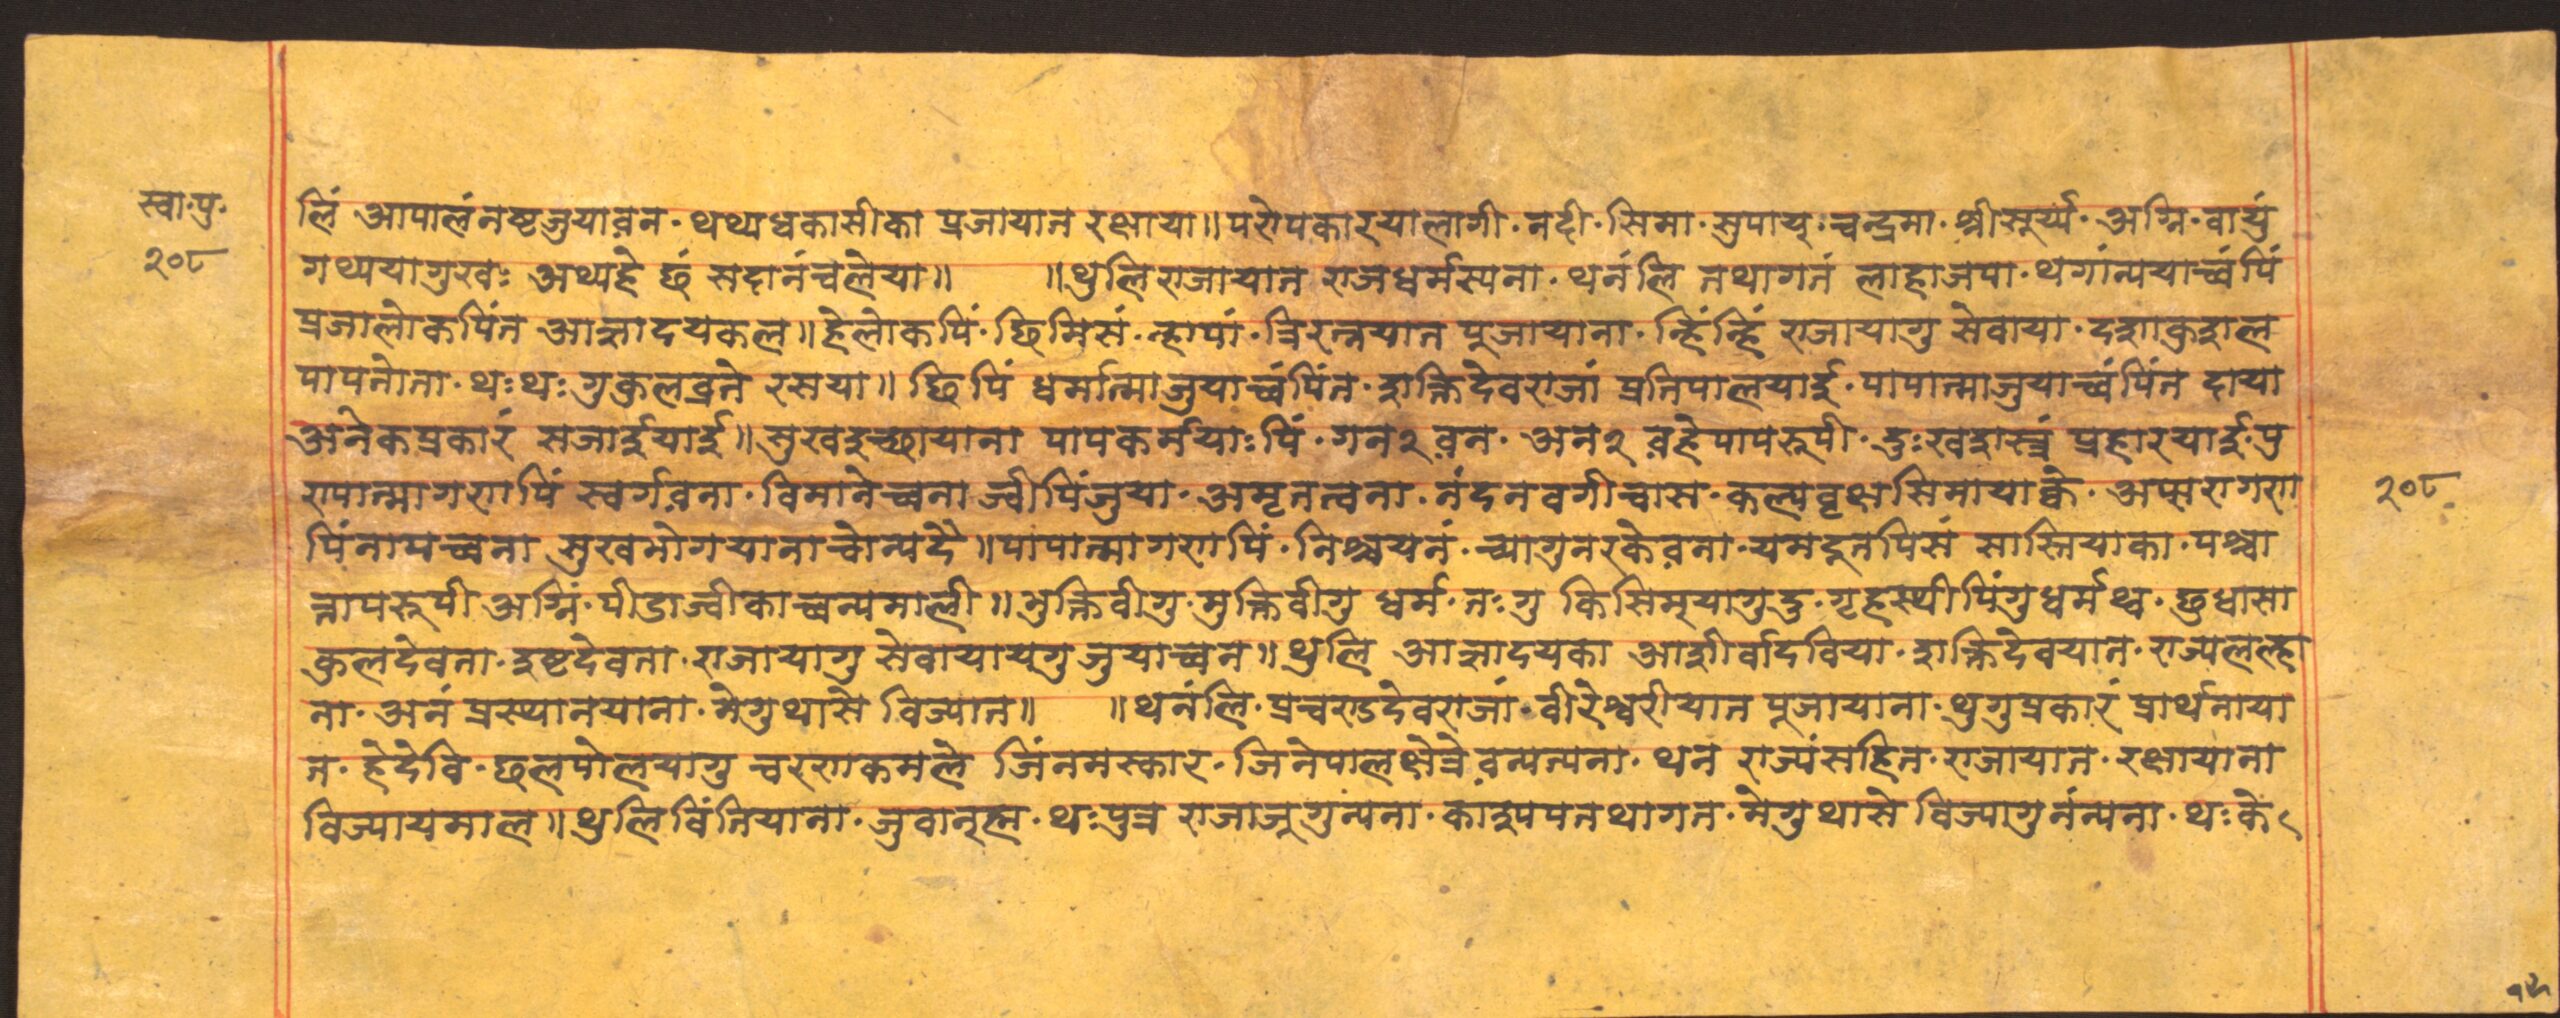 स्वा.पु.
२०८
लिं आपालंनष्टजुयावन. थथ्यधकासीका प्रजायात रक्षाया॥परोपकारयालागी. नदी. सिमा. सुपायु. चन्द्रमा. श्रीसूर्य्य. अग्नि. वायुं
गथ्ययागुखः अथ्यहे छं सदानंचलेया॥ ॥थुलिराजायात राजधर्मस्यना. थनंलि तथागतं लाहाजपा. थगांन्ययाच्वंपिं
प्रजालोकपिंत आज्ञादयकल॥हेलोकपिं. छिमिसं. न्हापां. त्रिरत्नयात पूजायाना. न्हिंन्हिं राजायागु सेवाया. दशाकुशल
पापतोता. थःथः गुकुलव्रते रसया॥ छिपिं धर्मात्माजुयाच्वंपिंत. शक्तिदेवराजां प्रतिपालयाई. पापात्माजुयाच्वंपिंत दाया
अनेकप्रकारं सजाईयाई॥सुखइच्छायाना पापकर्मयाःपिं. गन२ वन. अन२ वहेपापरूपी. दुःखशस्त्रं प्रहारयाई. पु
रापात्मागरापिं स्वर्गवना. विमानेच्वना ज्वीपिंजुया. अमृतत्वना. नंदनवगीचास. कल्पवृक्षसिमायाक्वे. अप्सरागरा
पिंनापच्वना सुखभोगयानाचोन्यदै॥पापात्मागरापिं. निश्चयनं. च्यागुनरकेवना. यमदूतपिसं सास्तियाका. पश्चा
त्तापरूपी अग्निं. पीडाज्वीकाच्वन्यमाली॥भुक्तिवीगु. मुक्तिवीगु धर्म. नःगु किसिम्‌यागुदु. गृहस्थीपिंगुधर्मथ्व. छुधासा
कुलदेवता. इष्टदेवता. राजायागु सेवायाय्‌गु जुयाच्वन॥थुलि आज्ञादयका आशीर्वादविया. शक्तिदेवयात. राज्यलल्हा
ना. अनं प्रस्थानयाना. मेगुथासे विज्यात॥ ॥थनंलि. प्रचराडदेवराजां. वीरेश्वरीयात पूजायाना. थुगुप्रकारं प्रार्थनाया
त. हेदेवि. छलपोलयागु चरराकमले जिंनमस्कार. जिनेपालक्षेत्रे वन्यत्यना. थन राज्यंसहित. राजायात. रक्षायाना
विज्यायमाल॥थुलिविंतियाना. थःपुत्र राजाजूगुन्यना. मेगुथासे विज्यागुनंन्यना. थःके
२०८